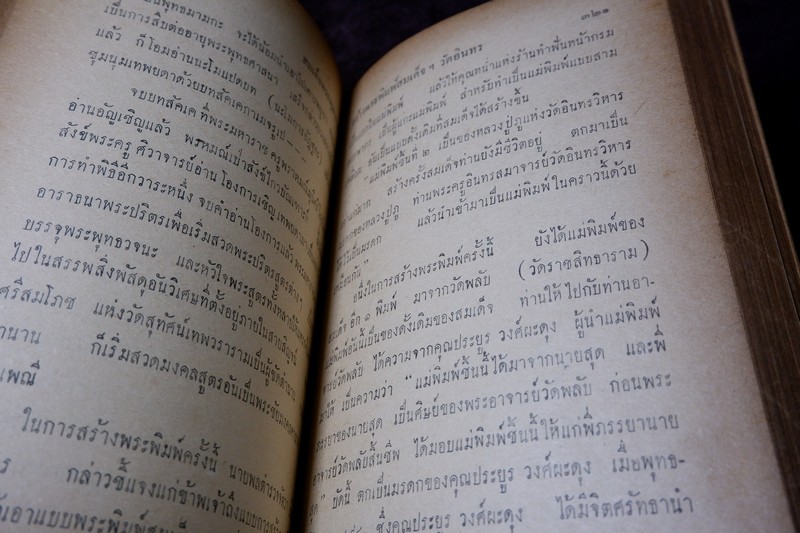 เป็นพุทธมามกะ จะได้น้อมนำเอา
เป็นการสืบต่ออายุพระพุทธศาสนา
แล้ว ก็โอมอ่านนะโมแปดบท
ชุมนุมเทพยดาด้วยบทสัคเคกาเมจรูเป — —
จบบทสัคเค ที่พระมหาราช
อ่านอัญเชิญแล้ว พรหมณ์เป่าสังข์
สังข์พระครู ศิวาจารย์อ่าน โองการเชิญ
การทำพิธีอีกวาระหนึ่ง จบคำอ่านโองการแล้ว
อาราธนาพระปริตรเพื่อเริ่มสวดพระปริตรสูตรต่างๆ
บรรจุพระพุทธวจนะ และหัวใจพระสูตรทั้งหลาย
ไปในสรรพสิ่งพัสดุอันวิเศษที่ตั้งอยู่ภายในสายสิญจน์
ศรีสมโภช แห่งวัดสุทัศน์เทพวรารามเป็นผู้ขัดตำนาน
านาน ก็เริ่มสวดมงคลสูตรอันเป็นพระ
เพณี
ในการสร้างพระพิมพ์ครั้งนี้ นายพลตำรวจ
ร กล่าวชี้แจงแก่ข้าพเจ้าถึงแบบการ
เอาแบบพระพิมพ์
๓๒๑
พิมพ์สมเด็จ ฯ วัดอินทร
แม่พิมพ์ แล้วให้คุณหน่ำแห่งร้านทำฟันหน้ากรม
เป็นผู้แกะแม่พิมพ์ สำหรับทำเป็นแม่พิมพ์แบบสาม
อันเป็นแบบดั้งเดิมที่สมเด็จได้สร้างขึ้น
"แม่พิมพ์ชิ้นที่ ๒ เป็นของหลวงปู่ภูแห่งวัดอินทรวิหาร
สร้างครั้งสมเด็จท่านยังมีชีวิตอยู่ ตกมาเป็น
ของหลวงปู่ภู ท่านพระครูอินทรสมาจารย์วัดอินทรวิหาร
เป็นมรดก แล้วนำเข้ามาเป็นแม่พิมพ์ในคราวนี้ด้วย
กัน"
อนึ่งในการสร้างพระพิมพ์ครั้งนี้ ยังได้แม่พิมพ์ของ
เด็จ อีก ๑ พิมพ์ มาจากวัดพลับ (วัดราชสิทธาราม)
พิมพ์อันนี้เป็นของดั้งเดิมของสมเด็จ ท่านให้ไปกับท่านอา-
ารย์วัดพลับ ได้ความจากคุณประยูร วงศ์ผะดุง ผู้นำแม่พิมพ์
ให้ เป็นความว่า "แม่พิมพ์ชิ้นนี้ได้มาจากนายสุด และพี่
รรยาของนายสุด เป็นศิษย์ของพระอาจารย์วัดพลับ ก่อนพระ
อาจารย์วัดพลับสิ้นชีพ ได้มอบแม่พิมพ์ชิ้นนี้ให้แก่พี่ภรรยานาย
สุด" บัดนี้ ตกเป็นมรดกของคุณประยูร วงศ์ผะดุง เมื่อพุทธ-
ซึ่งคุณประยูร วงศ์ผะดุง ได้มีจิตศรัทธานำ